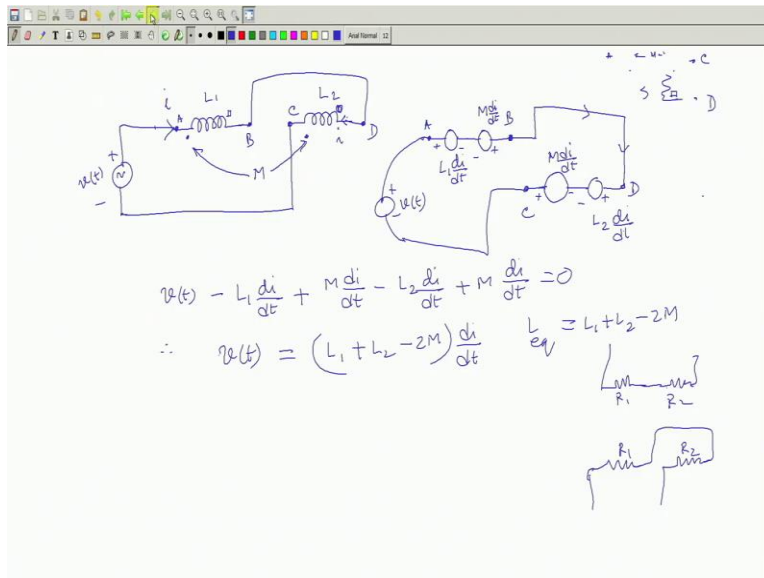 Arial Normal 12
i L₁ L₂
A B C D
i
v(t) + - M
A B C D
M di/dt
L₁ di/dt
M di/dt
L₂ di/dt
+ - v(t)
C
S D
v(t) - L₁ di/dt + M di/dt - L₂ di/dt + M di/dt = 0
∴ v(t) = (L₁ + L₂ - 2M) di/dt L eq = L₁ + L₂ - 2M
R₁ R₂
R₁ R₂